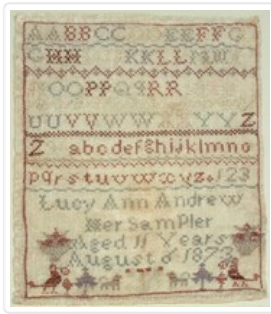 AABBCC EEFFG
G HH KKLLMM
OOPPQQRR
UUVVWW YYZ
Z abcdefghijklmno
pqrstuvwxyz 123
Lucy Ann Andrew
Her Sampler
Aged 11 Years
August 6 1877